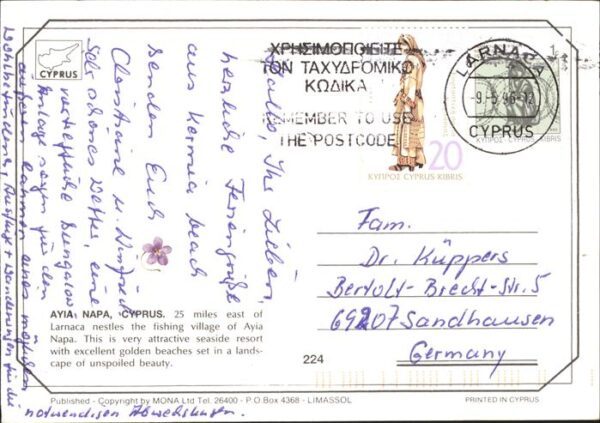 CYPRUS
ΧΡΗΣΙΜΟΠΟΙΕΙΤΕ
ΤΟΝ ΤΑΧΥΔΡΟΜΙΚΟ
ΚΩΔΙΚΑ
REMEMBER TO USE
THE POSTCODE
LARNACA
CYPRUS
20
ΚΥΠΡΟΣ CYPRUS KIBRIS
ΚΥΠΡΟΣ CYPRUS KIBRIS
Hallo, Ihr Lieben,
herzliche Feriengrüße
aus
beach
senden Euch
Christiane u.
Sehr schönes Wetter, eine
vortreffliche Bungalow
Anlage sorgen für den
äußeren Rahmen eines
Wohlbefindens, Ausflüge + Wanderungen für die
notwendigen Abwechslungen.
Fam.
Dr. Küppers
Bertolt-Brecht-Str. 5
69207 Sandhausen
Germany
AYIA NAPA, CYPRUS. 25 miles east of
Larnaca nestles the fishing village of Ayia
Napa. This is very attractive seaside resort
with excellent golden beaches set in a lands-
cape of unspoiled beauty.
224
Published - Copyright by MONA Ltd Tel. 26400 - P.O.Box 4368 - LIMASSOL
PRINTED IN CYPRUS